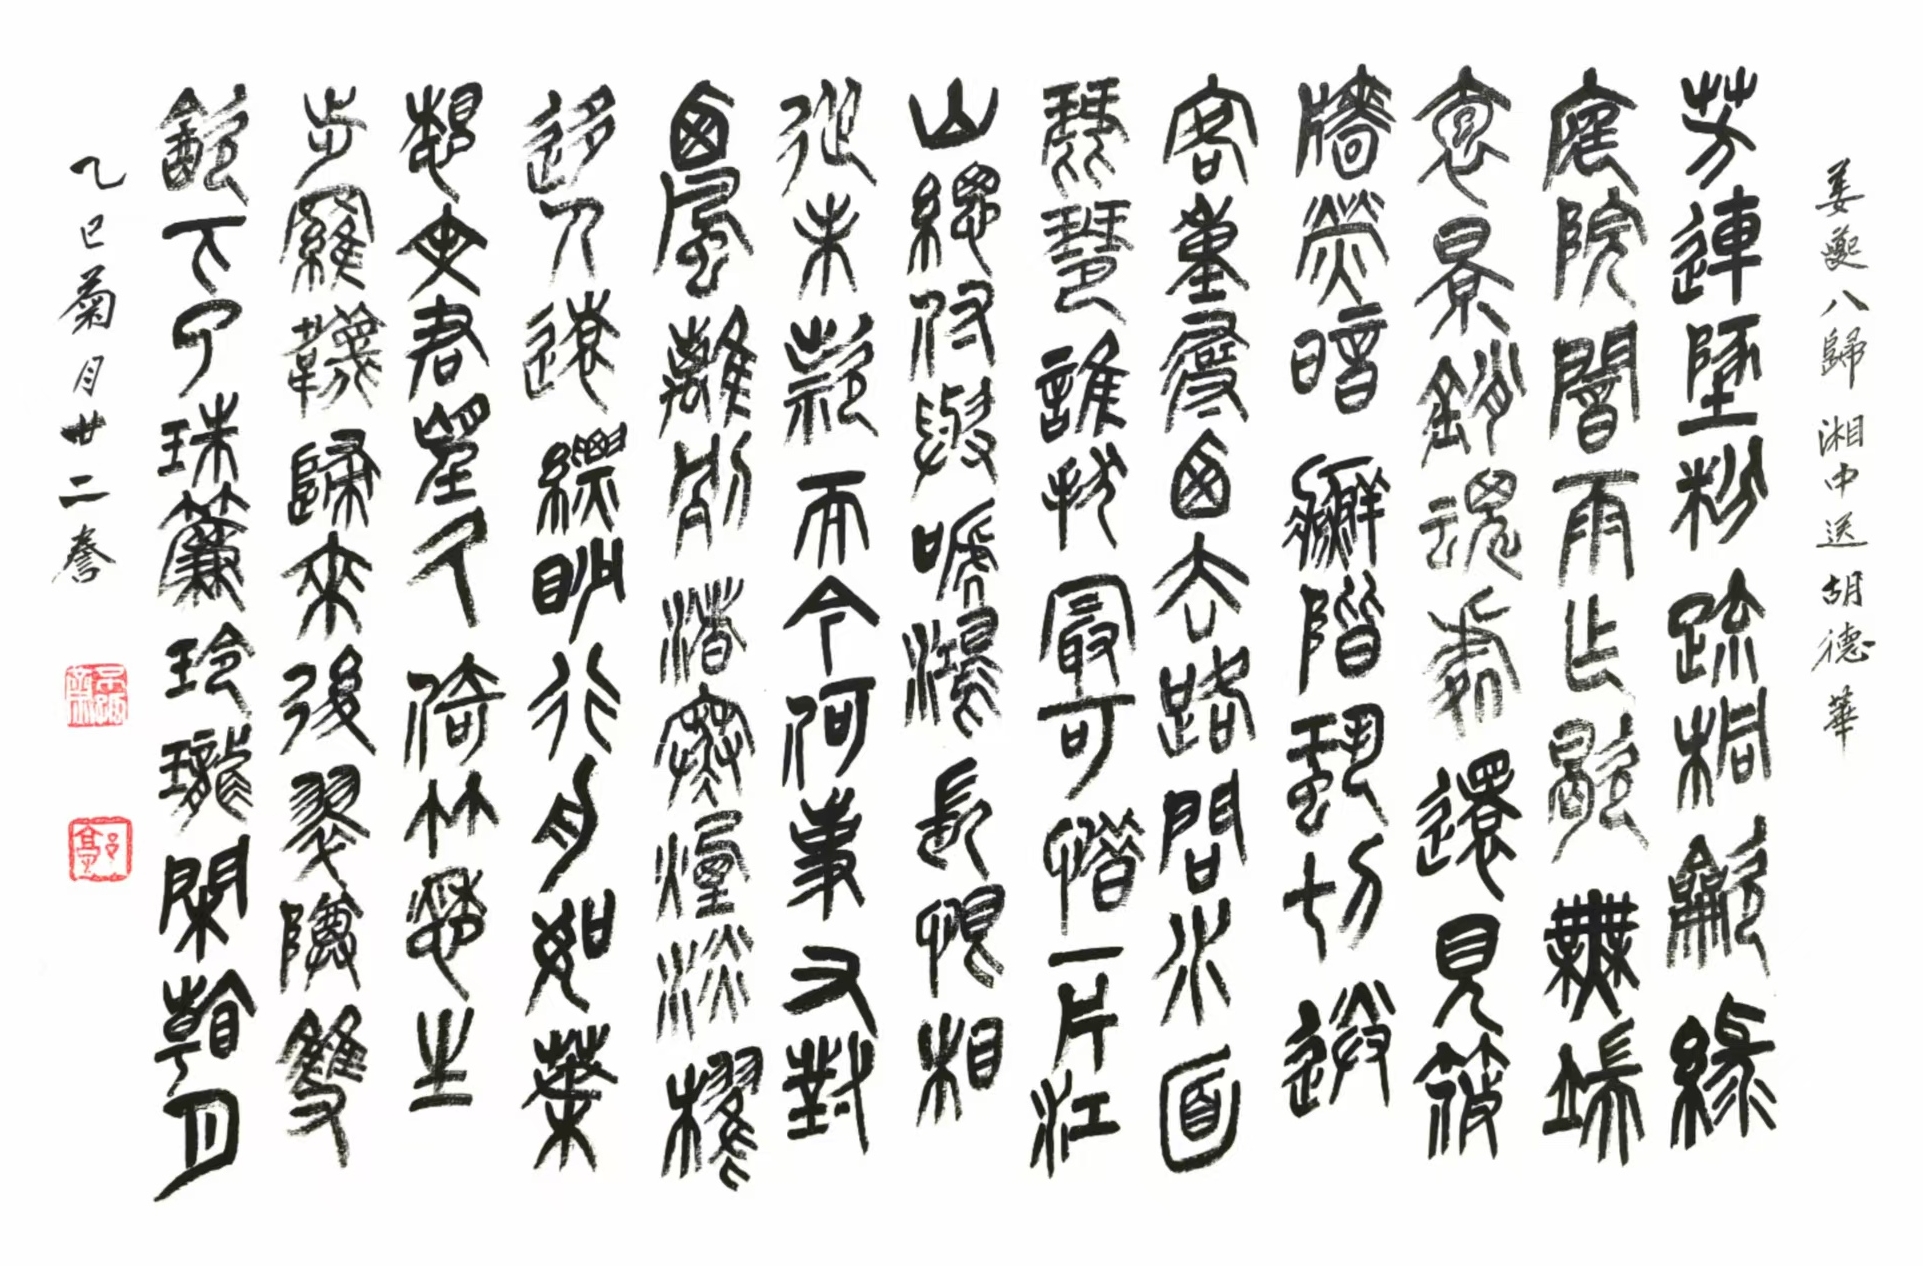 姜夔八歸湘中送胡德華
芳連墜粉疏桐龡綠
庭院闇雨乍歇無端
袌景銷魂處還見筱
牆熒暗蘚階蛩切送
客重尋西去路問水面
琵琶誰撥最可惜一片江
山總付與嗁鴂長恨相
從未款而今何事又對
西風離別渚寒煙淡櫂
迻人遠縹眇行舟如葉
想文君望久倚竹愁生
步羅韤歸來後翠尊雙
飲下了珠簾玲瓏閑看月
乙巳菊月廿二